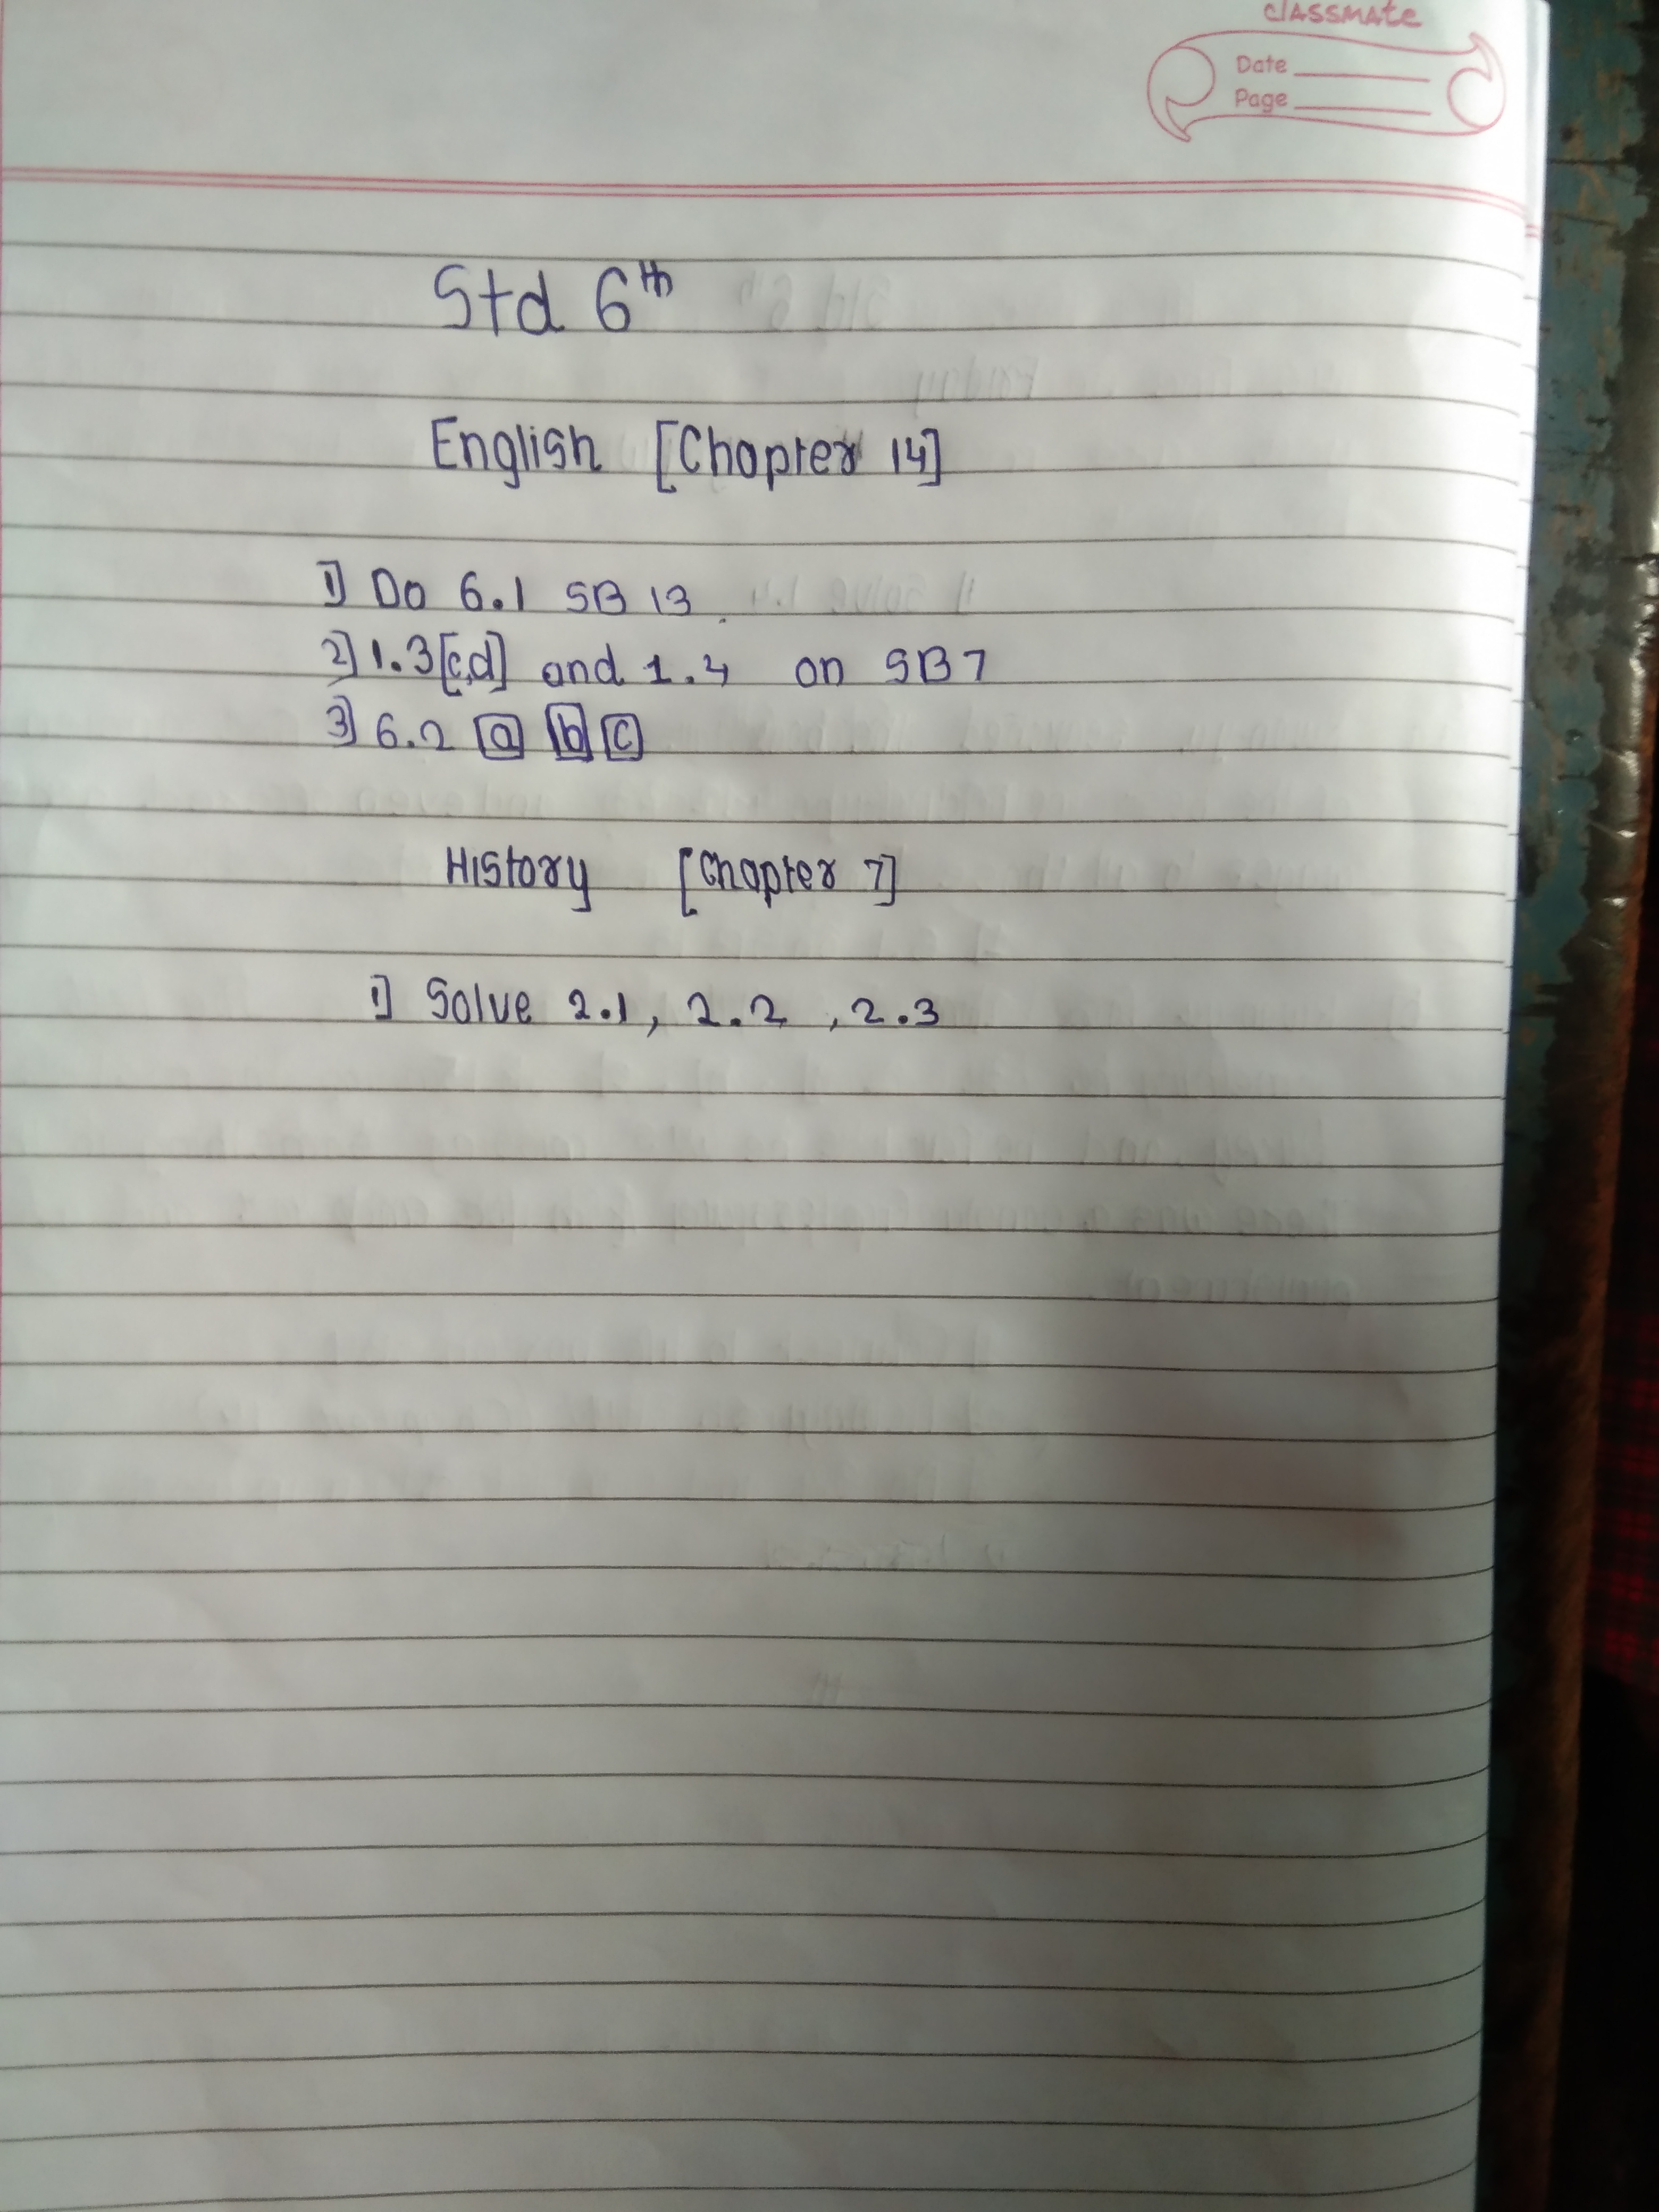 classmate
Date
Page
Std 6th
English [Chapter 14]
1] Do 6.1 SB 13
2] 1.3[c,d] and 1.4 on SB7
3] 6.2 a b c
History [Chapter 7]
1] Solve 2.1, 2.2, 2.3